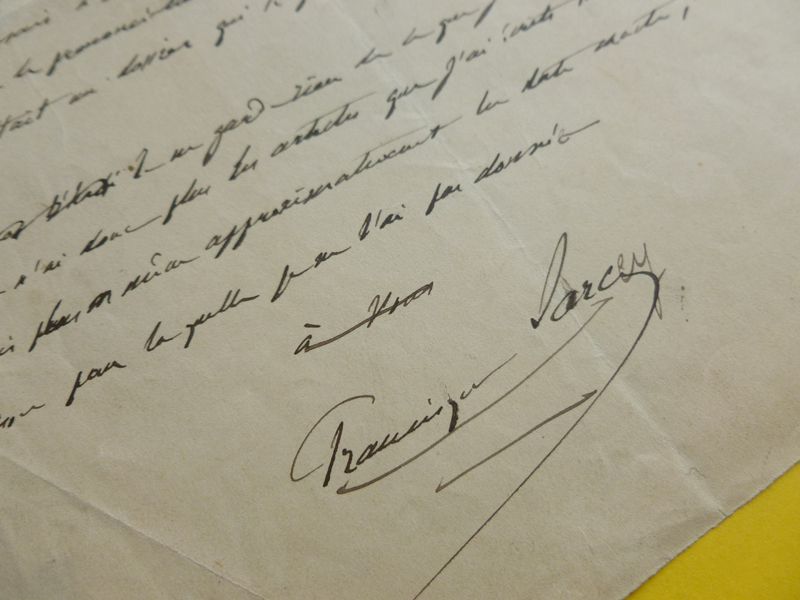 qui
était un dossier qui
ne gard rien de ce que
n'ai donc plus les articles que j'ai écrits
plus même approximativement la date exacte,
pour laquelle je ne l'ai pas donnée
à vous
Francisque Sarcey